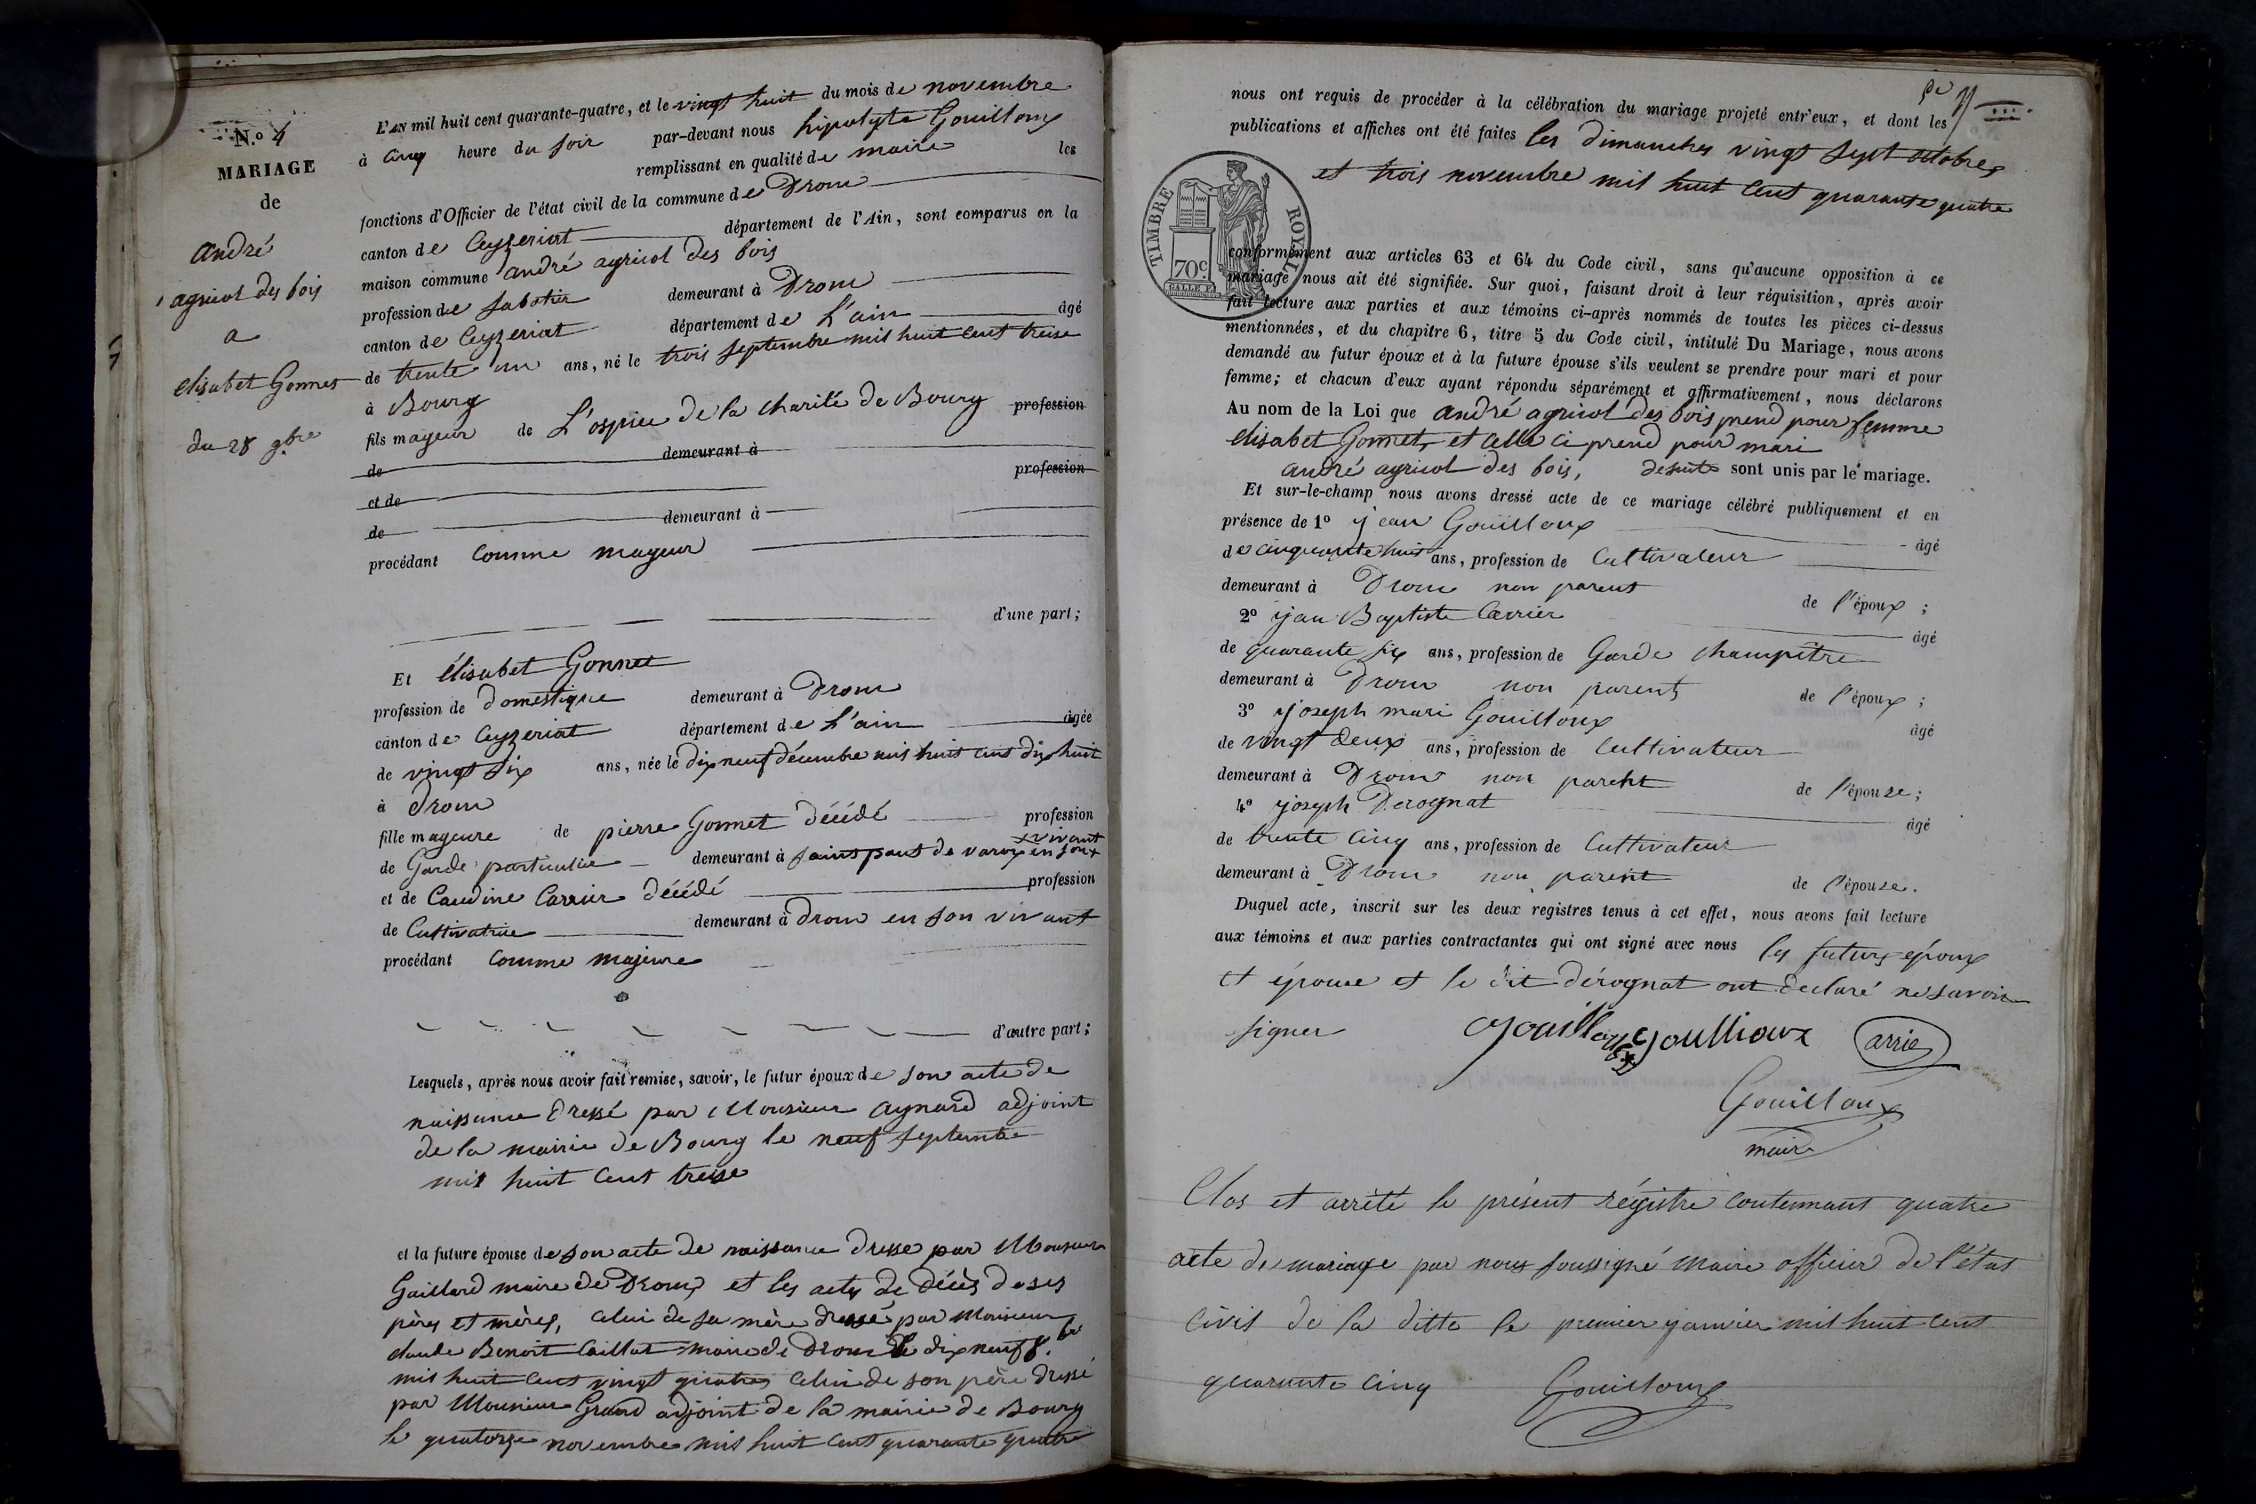 N.º 4
MARIAGE
de
André
agricol des bois
a
elisabet Gonnet
du 28 9bre
L'AN mil huit cent quarante-quatre, et le vingt huit du mois de novembre
à cinq heure du soir par-devant nous hipolyte Gouilloux
remplissant en qualité de maire les
fonctions d'Officier de l'état civil de la commune de Drom
canton de Ceyzeriat département de l'Ain, sont comparus en la
maison commune andré agricol des bois
profession de sabotier demeurant à Drom
canton de Ceyzeriat département de L'ain âgé
de trente un ans, né le trois septembre mil huit cent treise
à Bourg
fils mageur de L'ospice de la charité de Bourg profession
de demeurant à
et de profession
de demeurant à
procédant comme mageur
d'une part;
Et élisabet Gonnet
profession de domestique demeurant à Drom
canton de Ceyzeriat département de L'ain âgée
de vingt six ans, née le dix neuf décembre mil huit cent dix huit
à Drom
fille mageure de pierre Gonnet décédé profession
de Garde particulier demeurant à saint paul de varax en son vivant
et de Caudine Carrier décédé profession
de Cultivatrice demeurant à Drom en son vivant
procédant comme majeure
d'autre part;
Lesquels, après nous avoir fait remise, savoir, le futur époux de son acte de
naissance dressé par Monsieur aynard adjoint
de la mairie de Bourg le neuf septembre
mil huit cent treise
et la future épouse de son acte de naissance dresse par Monsieur
Gaillard maire de Drom et les actes de décès de ses
pères et mères, celui de sa mère dressé par Monsieur
claude Benoit Caillat maire de Drom le dix neuf 8.bre
mil huit cent vingt quatre celui de son père dressé
par Monsieur Grand adjoint de la mairie de Bourg
le quatorze novembre mil huit cent quarante quatre
nous ont requis de procéder à la célébration du mariage projeté entr'eux, et dont les
publications et affiches ont été faites les dimanches vingt sept octobre
et trois novembre mil huit cent quarante quatre
TIMBRE ROYAL
70c
conformément aux articles 63 et 64 du Code civil, sans qu'aucune opposition à ce
mariage nous ait été signifiée. Sur quoi, faisant droit à leur réquisition, après avoir
fait lecture aux parties et aux témoins ci-après nommés de toutes les pièces ci-dessus
mentionnées, et du chapitre 6, titre 5 du Code civil, intitulé Du Mariage, nous avons
demandé au futur époux et à la future épouse s'ils veulent se prendre pour mari et pour
femme; et chacun d'eux ayant répondu séparément et affirmativement, nous déclarons
Au nom de la Loi que andré agricol des bois prend pour femme
elisabet Gonnet, et celle ci prend pour mari
andré agricol des bois, desuite sont unis par le mariage.
Et sur-le-champ nous avons dressé acte de ce mariage célébré publiquement et en
présence de 1º jean Gouilloux âgé
de cinquante huit ans, profession de Cultivateur
demeurant à Drom non parent de l'époux ;
2º jean Baptiste Carrier âgé
de quarante six ans, profession de Garde champêtre
demeurant à Drom non parent de l'époux ;
3º joseph mari Gouilloux âgé
de vingt deux ans, profession de Cultivateur
demeurant à Drom non parent de l'épouse ;
4º joseph Derognat âgé
de trente cinq ans, profession de Cultivateur
demeurant à Drom non parent de l'épouse.
Duquel acte, inscrit sur les deux registres tenus à cet effet, nous avons fait lecture
aux témoins et aux parties contractantes qui ont signé avec nous les futurs époux
et épouse et le dit dérognat ont declaré ne savoir
signer Gouilloux Goullioux
Gouilloux
maire
Clos et arrêté le présent régistre contennant quatre
acte de mariage par nous soussigné Maire officier de l'état
Civil de la ditte le premier janvier mil huit cent
quarante cinq Gouilloux